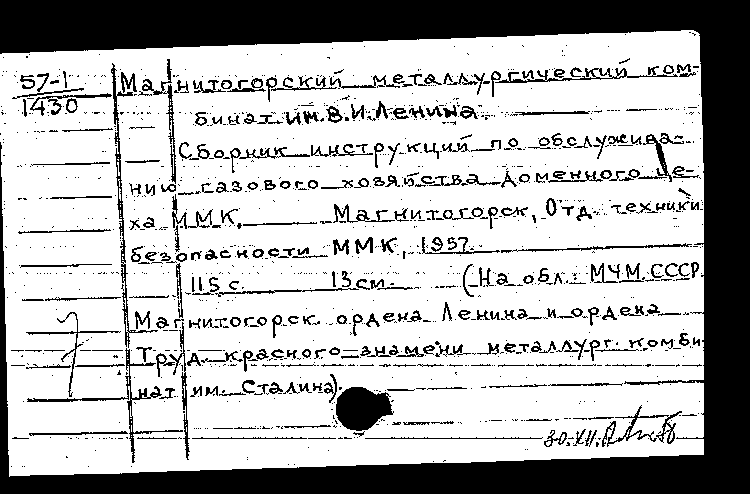 57-1
1430
Магнитогорский металлургический ком-
бинат им. В.И. Ленина.
Сборник инструкций по обслужива-
нию газового хозяйства доменного це-
ха ММК. Магнитогорск, Отд. техники
безопасности ММК, 1957.
115 с. 13 см. (На обл.: МЧМ СССР.
Магнитогорск. ордена Ленина и ордена
Труд. красного знамени металлург. комби
нат им. Сталина).
30.XII.